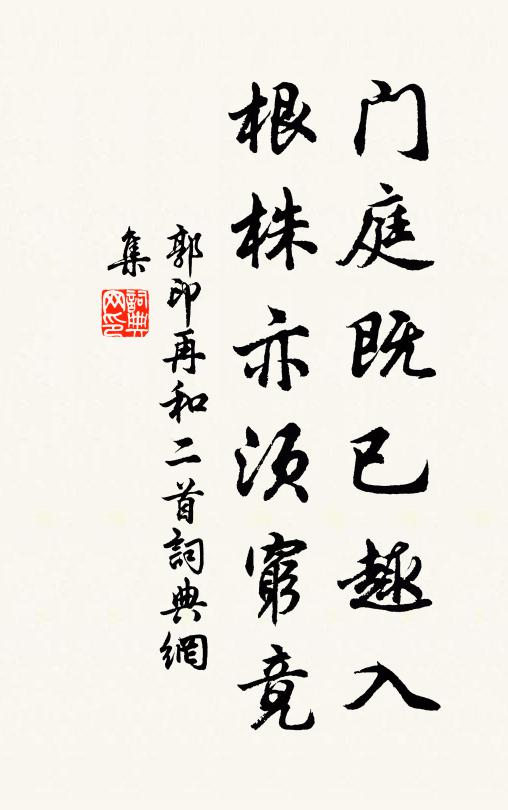 门庭既已趣入
根株亦须窮竟
郭印再和二首詞典網
集
詞典
网印